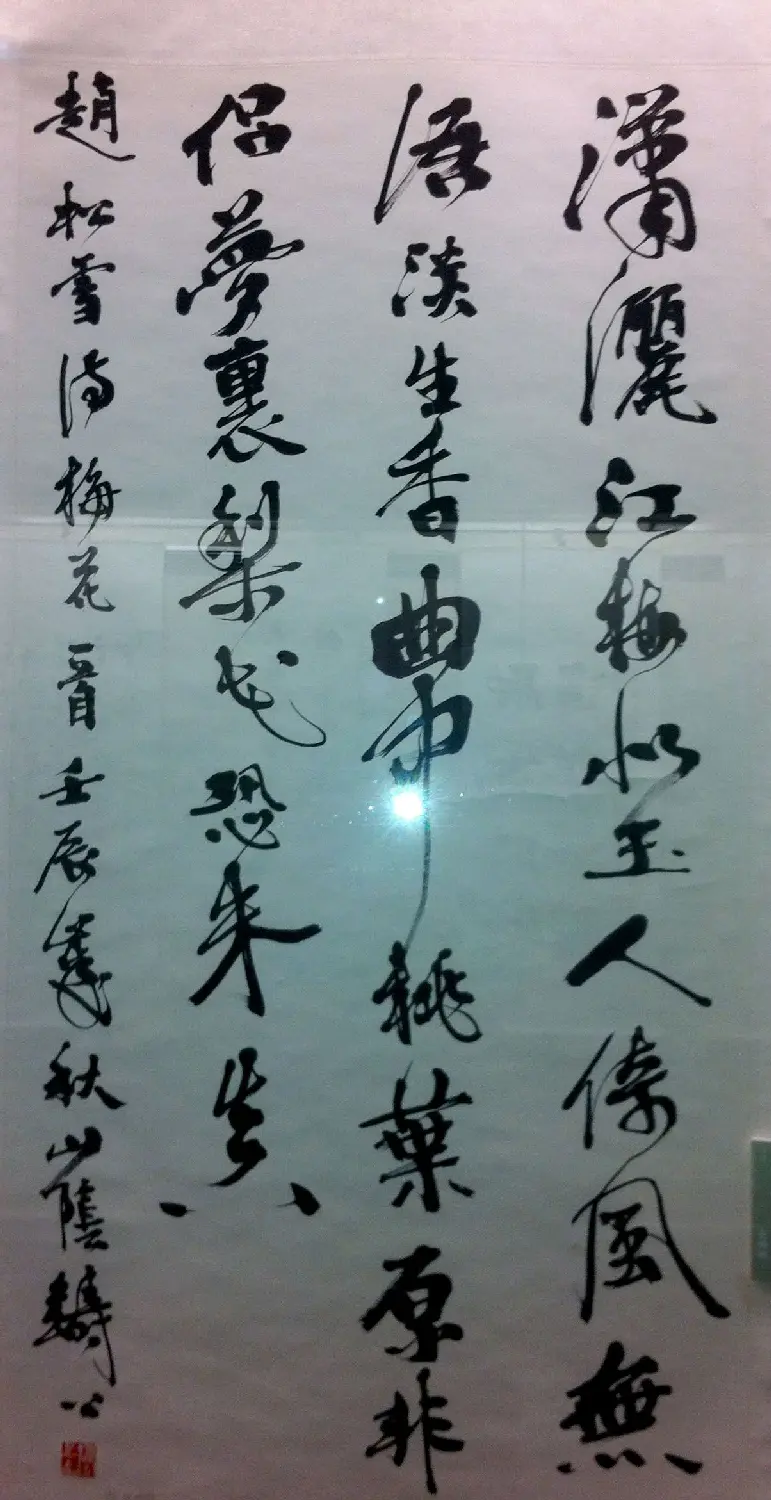 瀟灑江梅似玉人倚風無
語淡生香曲中桃葉原非
侣夢裏梨花恐未真
趙松雪詩梅花一首壬辰歲秋山陰公